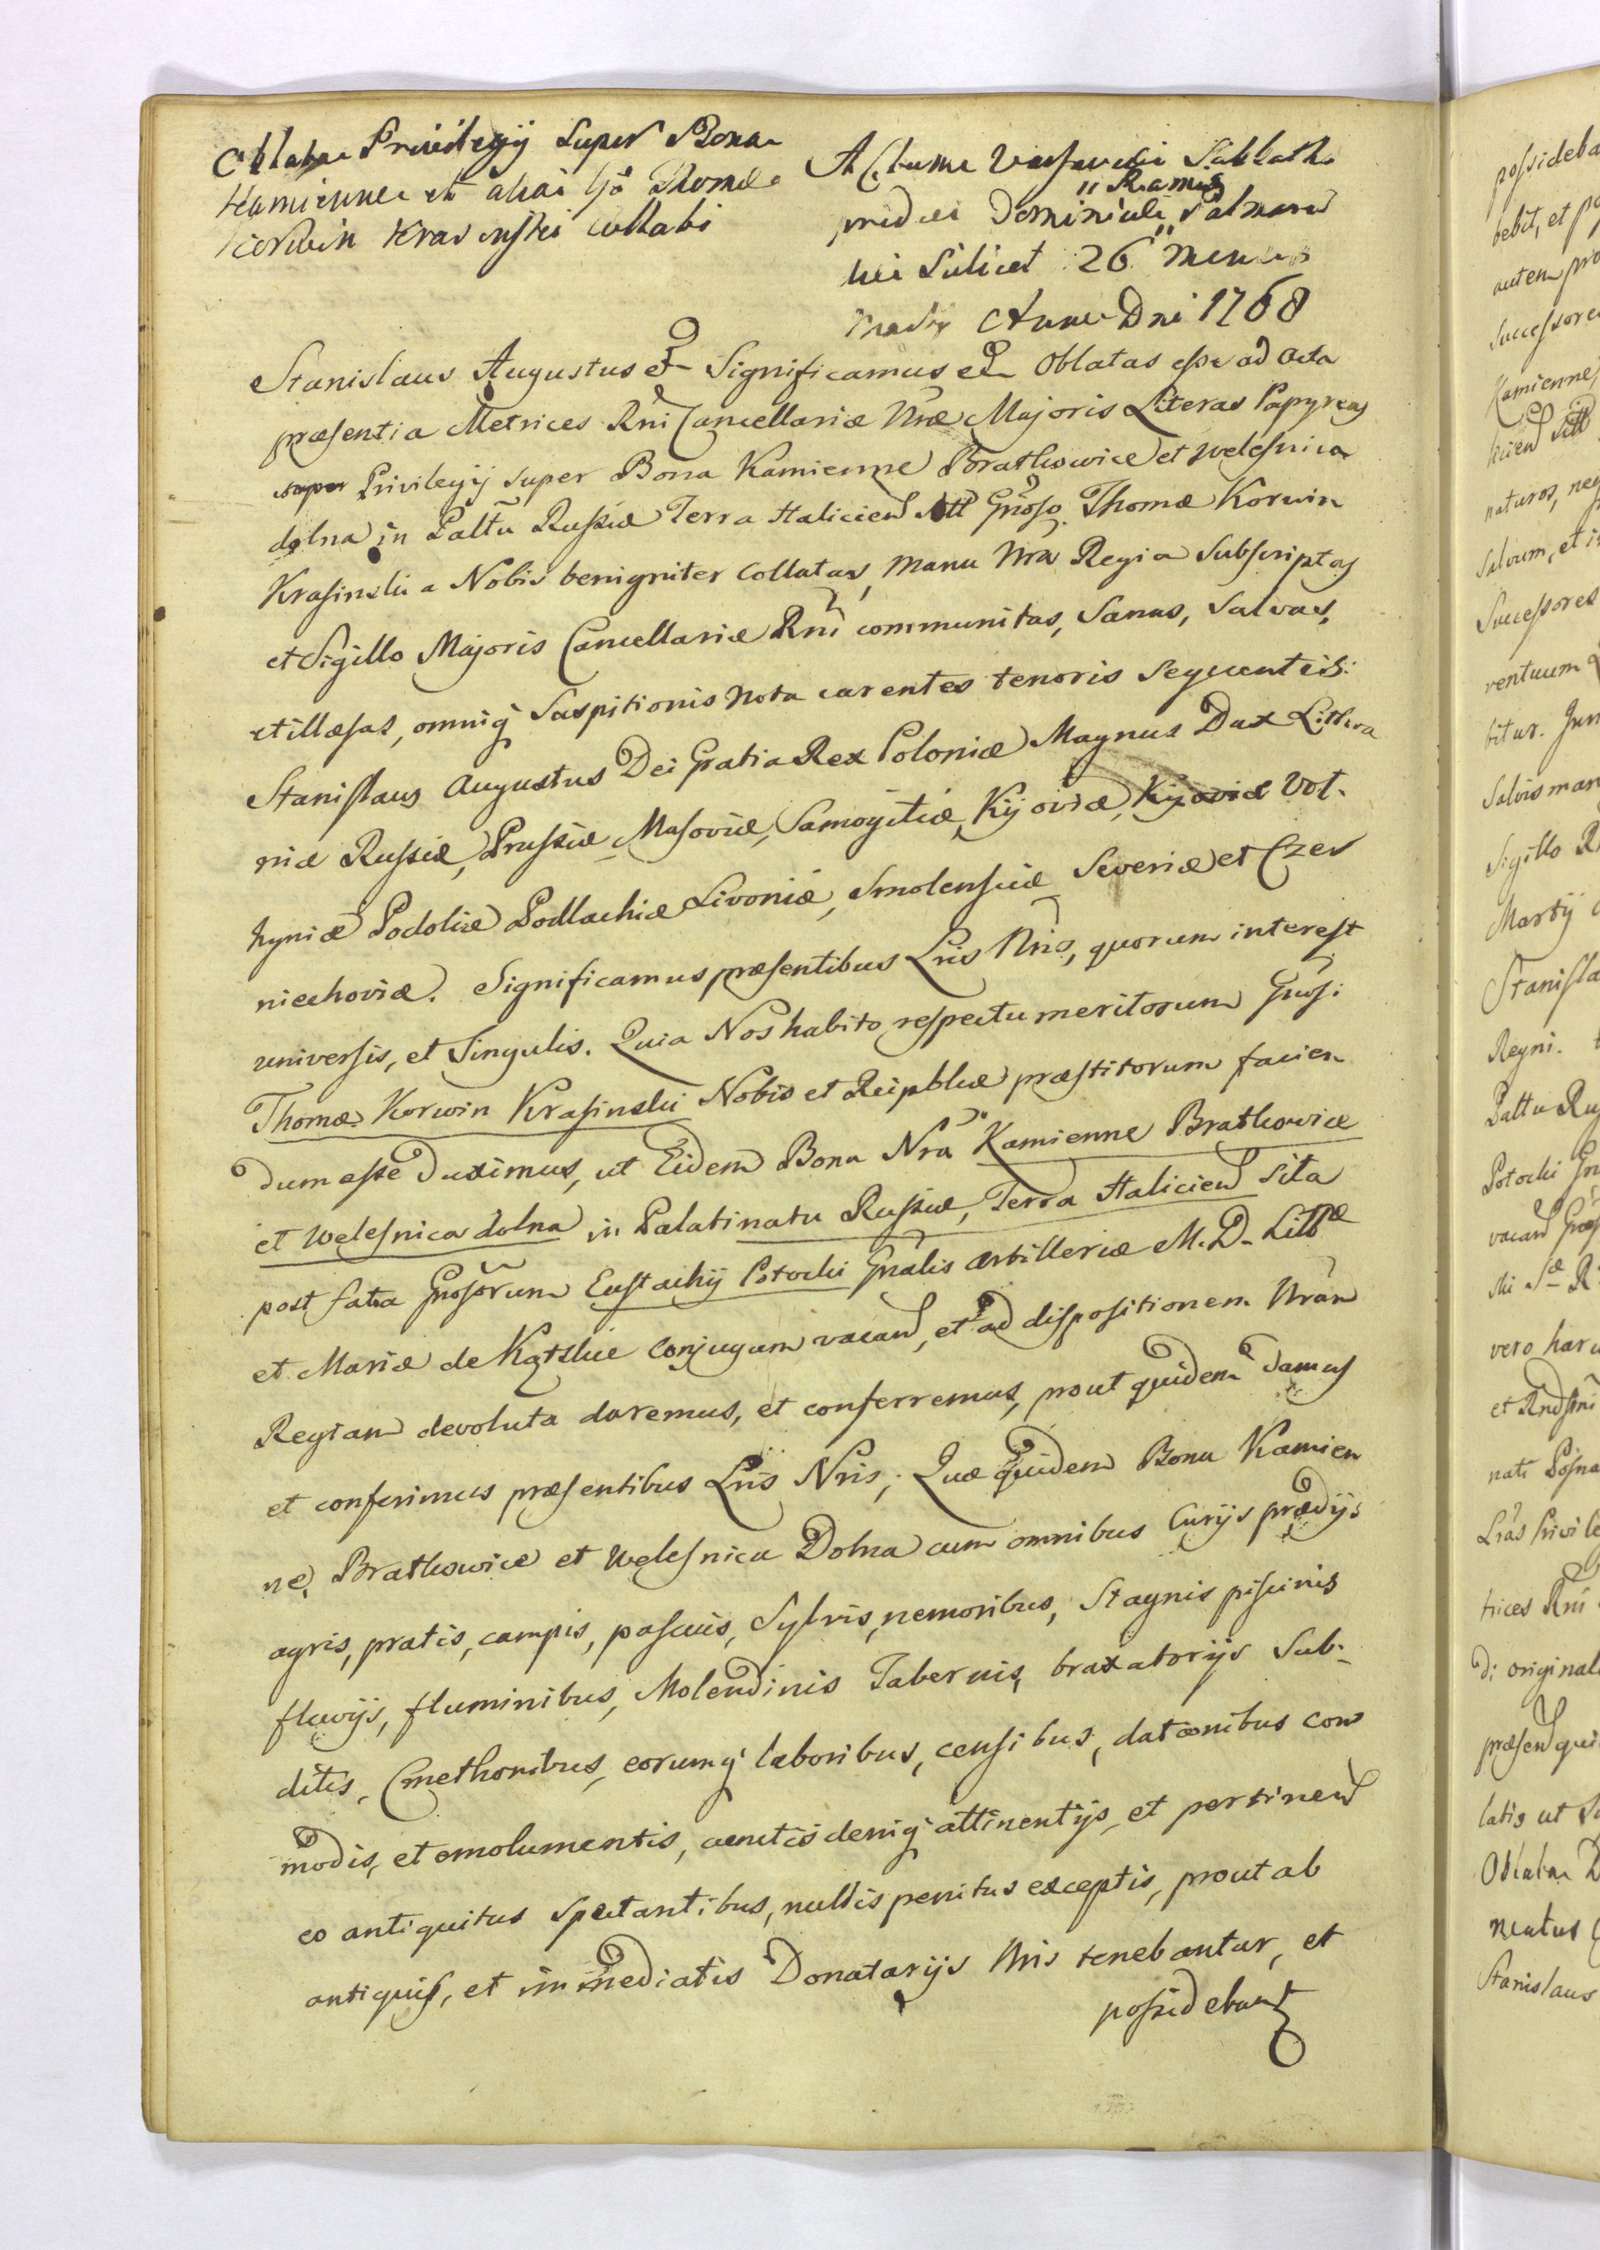 Oblata Privilegij super Bona
Kamienne et alia Gso Thomæ
Korwin Krasinski collati
Actum Varsaviæ Sabbatho
pridie Dominicæ Ramis Palmarum
die Scilicet 26 Mensis
Anno Dni 1768
Stanislaus Augustus etc Significamus etc Oblatas esse ad Acta
præsentia Metrices Rni Cancellariæ Nræ Majoris Literas Papyreas
super Privilegij super Bona Kamienne Bratkowice et Welesnica
dolna in Paltu Russiæ Terra Haliciens sitt Gnoso Thomæ Korwin
Krasinski a Nobis benigniter collatas, Manu Nra Regia Subscriptas
et Sigillo Majoris Cancellariæ Rni communitas, Sanas, Salvas,
et illæsas, omniq suspitionis Nota carentes tenoris sequentis:
Stanislaus Augustus Dei Gratia Rex Poloniæ Magnus Dux Lithva
niæ Russiæ, Prussiæ, Masoviæ, Samogitiæ, Kijoviæ, Kijoviæ Vol-
hyniæ Podoliæ Podlachiæ Livoniæ, Smolensciæ Severiæ et Czer
niechoviæ. Significamus præsentibus Lris Nris, quorum interest
universis, et Singulis. Quia Nos habito respectu meritorum Gnosi
Thomæ Korwin Krasinski Nobis et Reipblicæ præstitorum facien
dum esse duximus, ut Eidem Bona Nra Kamienne Bratkowice
et Welesnica dolna in Palatinatu Russiæ, Terra Haliciens Sita
post fata Gnosorum Eustachij Potocki Gnalis Artilleriæ M. D. Littæ
et Mariæ de Kątskie Conjugum vacan, et ad dispositionem Nram
Regiam devoluta daremus, et conferremus, prout quidem damus
et conferimus præsentibus Lris Nris; Quæ quidem Bona Kamien
ne, Bratkowice et Welesnica Dolna cum omnibus Curijs prædijs
agris, pratis, campis, pascuis, Sylvis, nemoribus, Stagnis piscinis
fluvijs, fluminibus, Molendinis Tabernis, braxatorijs Sub-
ditis, Cmethonibus, eorumq laboribus, censibus, dationibus com
modis, et emolumentis, cunctis deniq attinentijs, et pertinen
eo antiquitus spectantibus, nullis penitus exceptis, prout ab
antiquis, et immediatis Donatarijs Nris tenebantur, et
possidebant